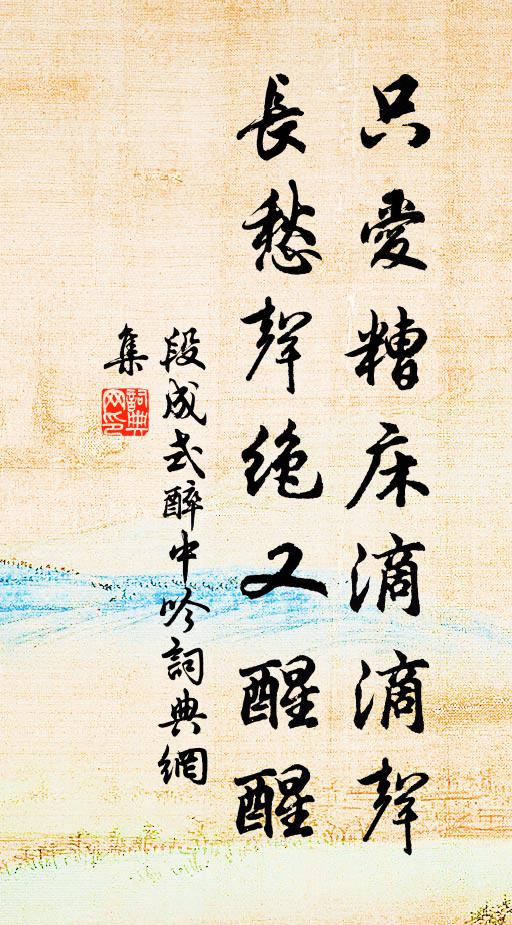 只愛糟床滴滴聲
長愁聲絶又醒醒
段成式醉中吟詞典網
集
詞典網印